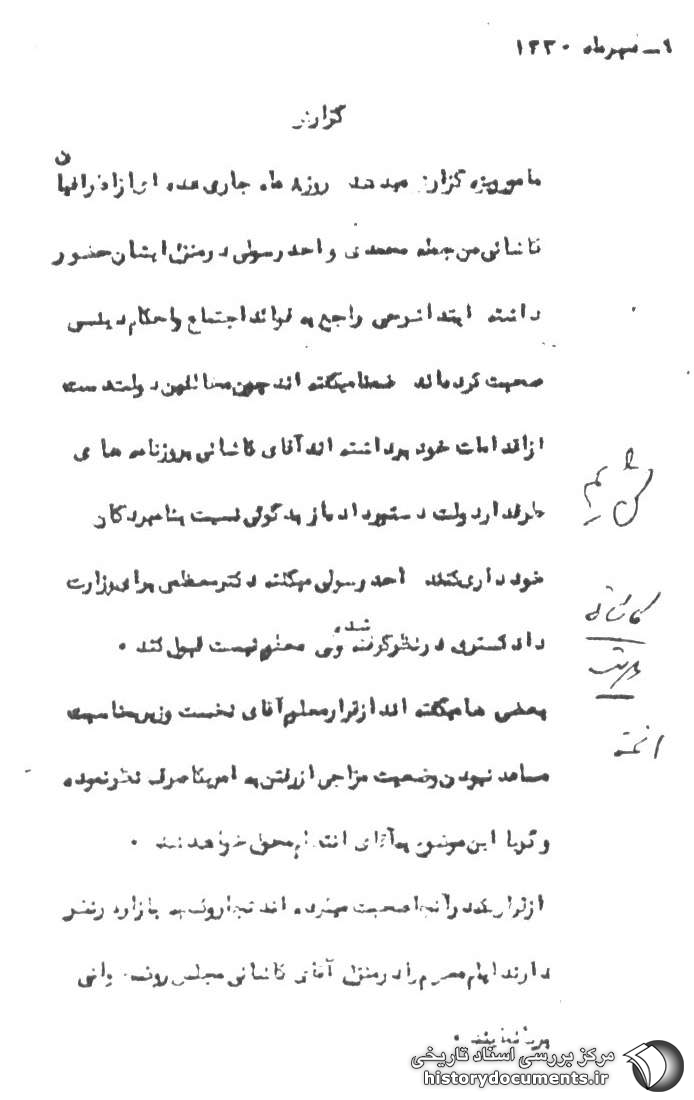 ۹ـ مهرماه ۱۳۳۰
گزارش
مامور ویژه گزارش میدهد روز ۸ ماه جاری عده ای از اطرافیان
کاشانی من جمله محمدی و احد رسولی در منزل ایشان حضور
داشته ابتدا شرحی راجع به فوائد اجتماع و احکام دینی
صحبت کرده اند ضمنا میگفته اند چون مخالفین دولت دست
از اقدامات خود برداشته اند آقای کاشانی بروزنامه های
طرفدار دولت دستور داده از بدگوئی نسبت بنامبردگان
خودداری کنند احد رسولی میگفته دکتر معظمی برای وزارت
دادگستری در نظر گرفته شده ولی معلوم نیست قبول کند .
بعضی ها میگفته اند از قرار معلوم آقای نخست وزیر بمناسبت
مساعد نبودن وضعیت مزاجی از رفتن به امریکا صرف نظر نموده
و گویا این موضوع به آقای محول خواهد شد .
از قراریکه در آنجا صحبت میکرده اند تجار وکسبه بازار در نظر
دارند ایام محرم را در منزل آقای کاشانی مجلس روضه خوانی
برپا نمایند .
کاشانی
مرکز بررسی اسناد تاریخی
historydocuments.ir